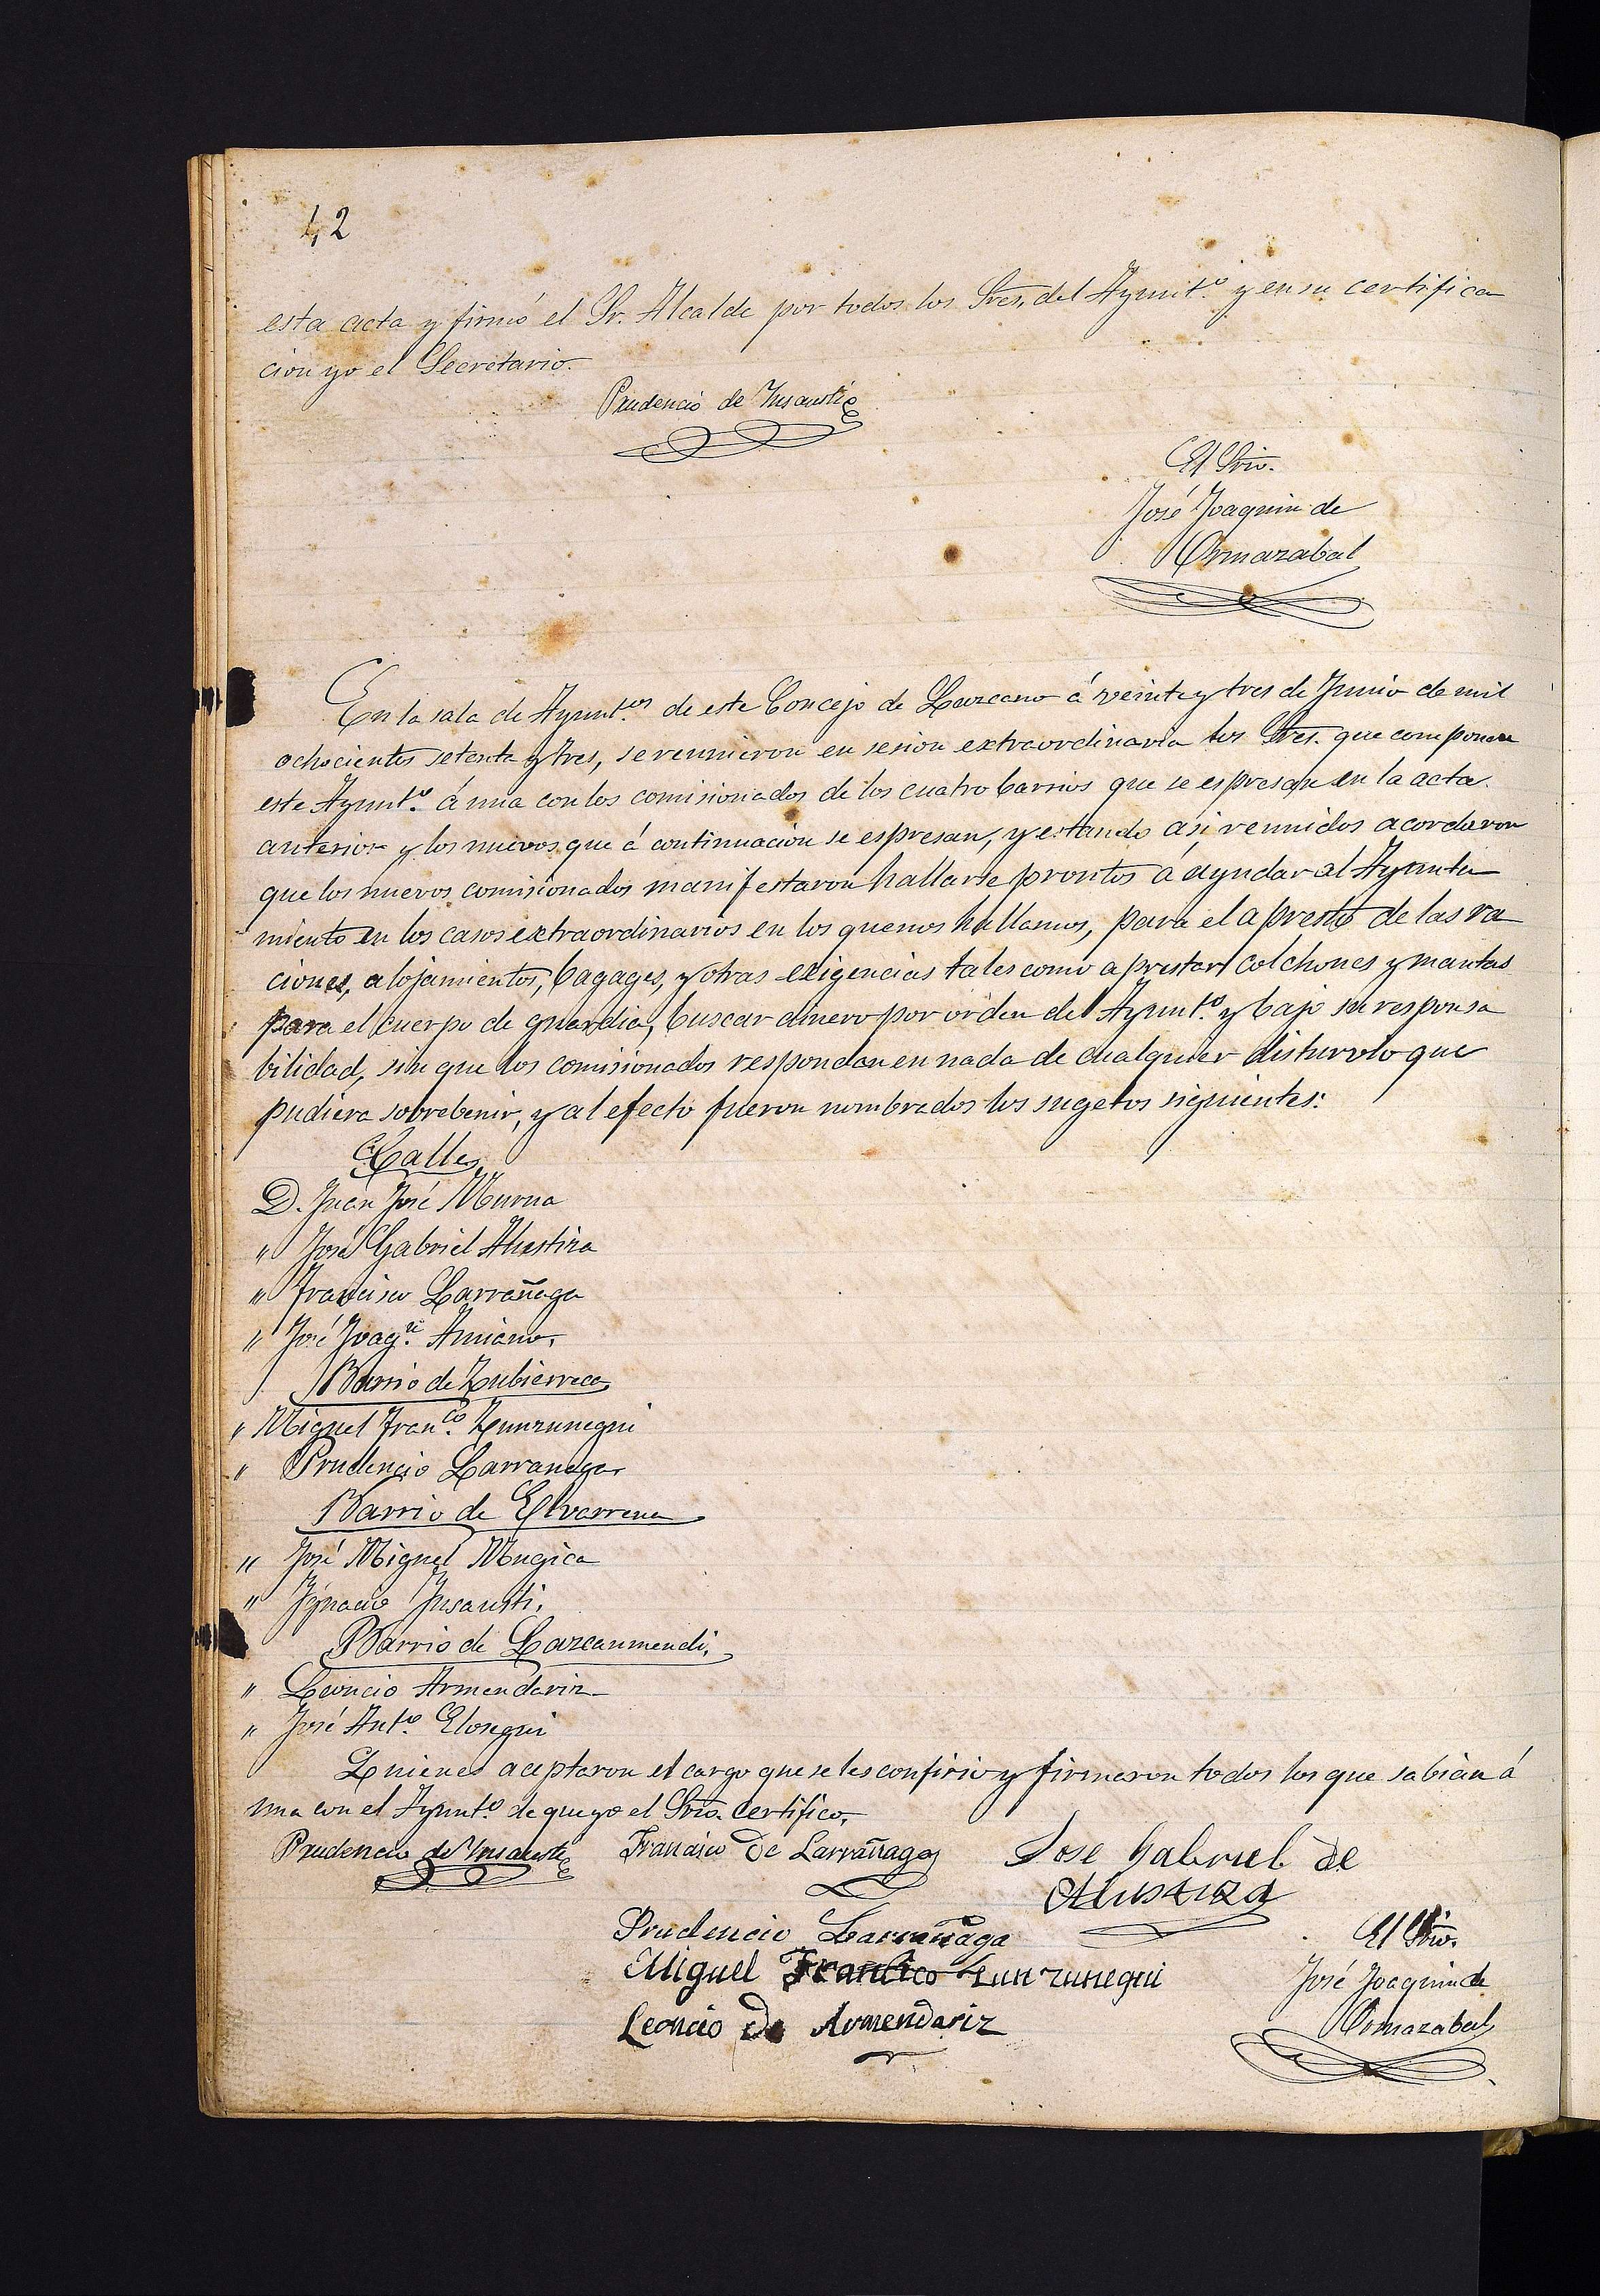 42
esta acta y firmó el Sr. Alcalde por todos los Sres. del Ayunt.º y en su certifica
cion yo el Secretario.
Prudencio de Ynsausti
El Srio.
José Joaquin de
Ormazabal
En la sala de Ayunt.os de este Concejo de Lazcano á veinte y tres de Junio de mil
ochocientos setenta y tres, se reunieron en sesion extraordinaria los Sres. que componen
este Ayunt.º á una con los comisionados de los cuatro barrios que se espresan en la acta
anterior y los nuevos que á continuacion se espresan, y estando asi reunidos acordaron
que los nuevos comisionados manifestaron hallarse prontos á ayudar al Ayunta
miento en los casos extraordinarios en los que nos hallamos, para el apresto de las ra
ciones, alojamientos, bagages, y otras exigencias tales como aprestar colchones y mantas
para el cuerpo de guardia, buscar dinero por orden del Ayunt.º y bajo su responsa
bilidad, sin que los comisionados respondan en nada de cualquier disturvio que
pudiera sobrebenir, y al efecto fueron nombrados los sugetos siguientes:
Calle
D. Juan José Murua
" José Gabriel Alustiza
" Francisco Larrañaga
" José Joaq.n Amiano.
Barrio de Zubierreca
" Miguel Fran.co Zunzunegui
" Prudencio Larranaga
Barrio de Elvarrena
" José Miguel Mugica
" Ygnacio Ynsausti.
Barrio de Lazcanmendi.
" Leoncio Armendariz
" José Ant.º Elosegui
Quienes aceptaron el cargo que se les confirio y firmaron todos los que sabian á
una con el Ayunt.º de que yo el Srio. certifico.
Prudencio de Ynsausti Francisco De Larrañaga Jose Gabriel de
Alustiza
Prudencio Larrañaga El Srio.
Miguel Francico Zunzunegui José Joaquin de
Leoncio De Armendariz Ormazabal